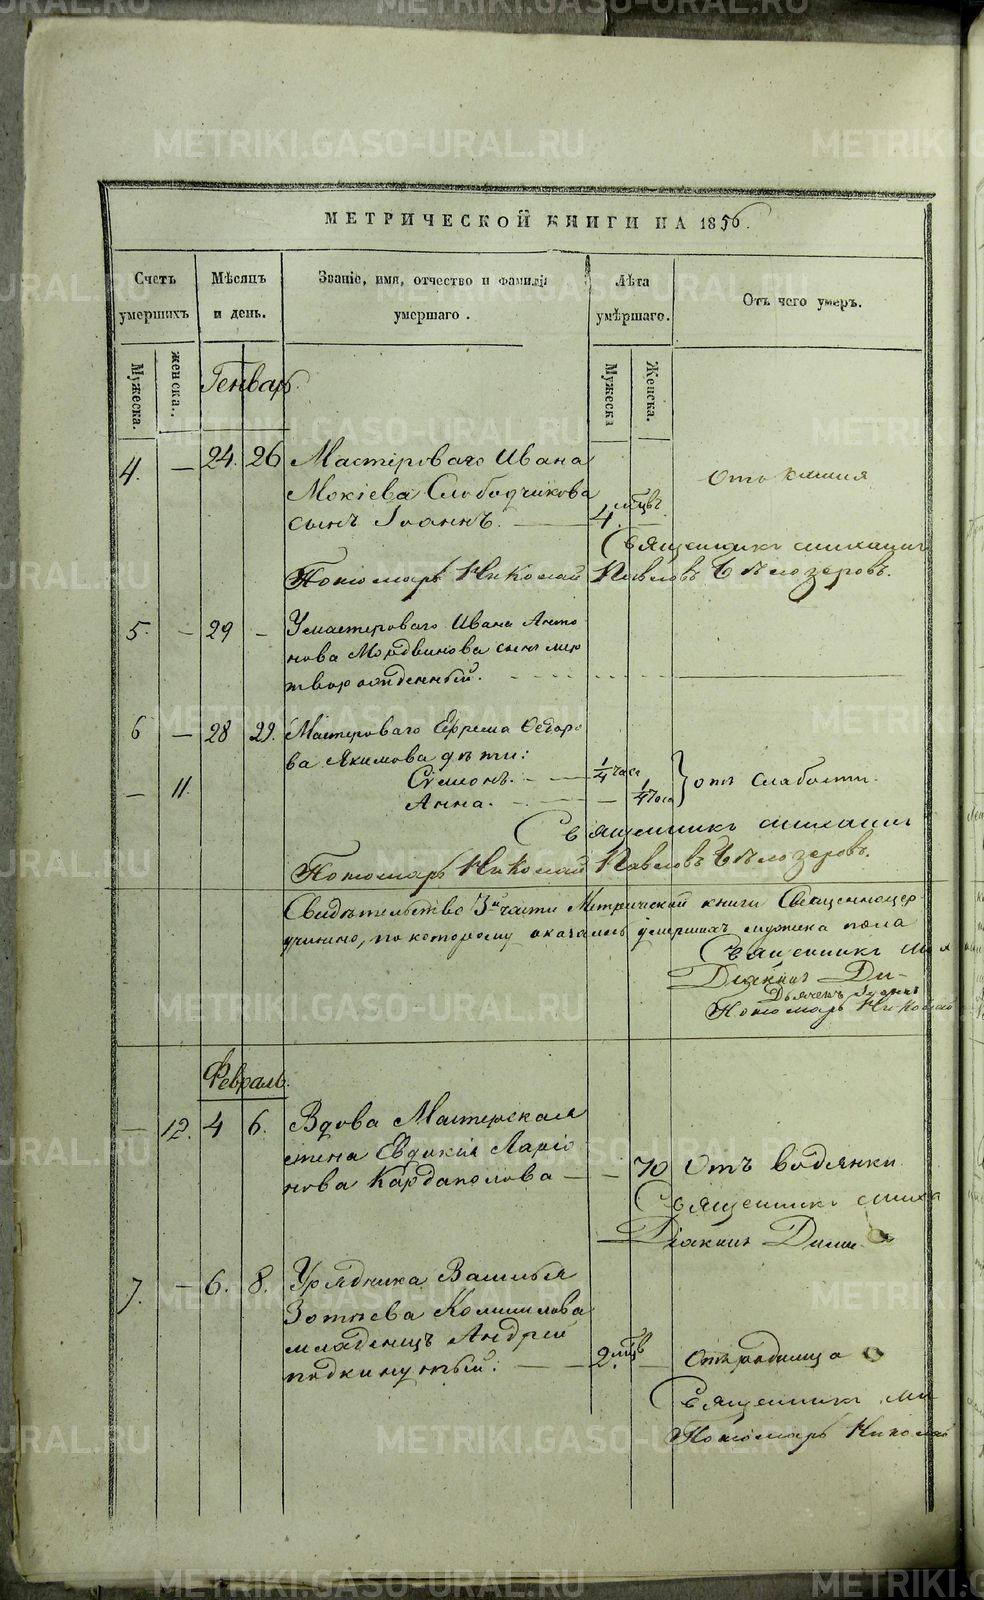 МЕТРИЧЕСКОЙ КНИГИ НА 1856.
Счетъ умершихъ
Мѣсяцъ и день.
Званіе, имя, отчество и фамилія умершаго.
Лѣта умѣршаго.
Отъ чего умеръ.
Мужеска.
женска.
Мужеска
Женска.
Генварь.
4. — 24. 26 Мастероваго Ивана
Мокіева Слободчикова
сынъ Іоаннъ. — 4 мцвъ. — Отъ кашля
Священникъ Михаилъ
Пономарь Николай Павловъ Бѣлозеровъ.
5. — 29 — У мастероваго Ивана Анто
нова Мордвинова сынъ мер
твор
6 — 28 29. Мастероваго Ефрема Ѳедоро
ва Якимова дѣти:
Сѵмеонъ. — 1/4 часа
— 11. Анна. — 1/4 часа } отъ слабости.
Священникъ Михаилъ
Пономарь Николай Павловъ Бѣлозеровъ.
Свидѣтельство 3й части Метрической книги Священноцер
учинено, по которому оказалось умершихъ мужеска пола
Священникъ Ми
Діаконъ Ди-
Дьячекъ
Пономарь Николай
Февраль.
— 12. 4 6. Вдова Мастерская
жена Евдокія Ларіо
нова Кардаполова — — 70 Отъ водянки
Священникъ Миха
Діаконъ Дими
7. — 6. 8. Урядника Василья
Зотѣева
младенецъ Андрей
подкинутый. — 2 мцвъ — Отъ родимца
Священникъ Ми
Пономарь Николай
METRIKI.GASO-URAL.RU